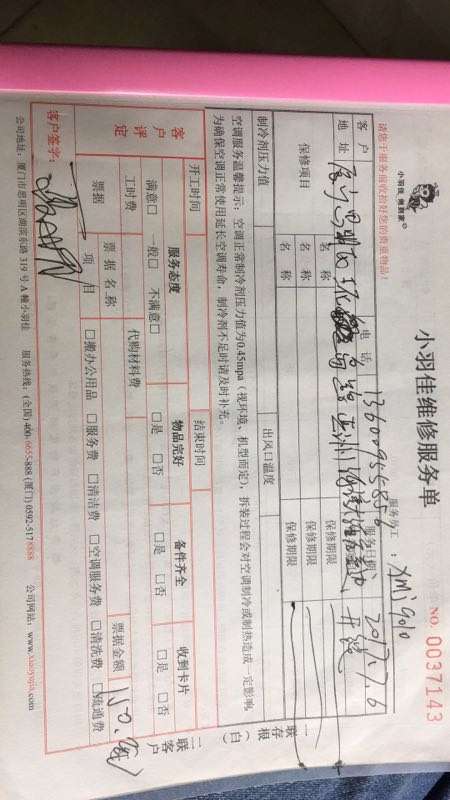 小羽佳 佣到家
小羽佳维修服务单
NO. 0037143
请您于服务前收拾好您的贵重物品!
服务员工: XM19010
客户 电话 13600955859 服务日期 2017.7.6
地址
保修项目 名称 保修期限
名称 保修期限
名称 保修期限
制冷剂压力值 出风口温度
空调服务温馨提示: 空调正常制冷剂压力值为0.45mpa(视环境、机型而定), 拆装过程会对空调制冷或制热造成一定影响,
为确保空调正常使用延长空调寿命, 制冷剂不足时请及时补充。
开工时间 结束时间
客户评定 服务态度 物品完好 备件齐全 收到卡片
满意□ 一般□ 不满意□ □是 □否 □是 □否 □是 □否
工时费 代购材料费
票据 票据名称 票据金额 150.
项目 □搬办公用品 □服务费 □清洁费 □空调服务费 □清洗费 □疏通费
客户签字:
一联存根(白) 二联客户
公司地址: 厦门市思明区湖滨东路 319 号 A 幢小羽佳 服务热线: (全国) 400-0655-888 (厦门) 0592-5178888 公司网站: www.xiaoyujia.com